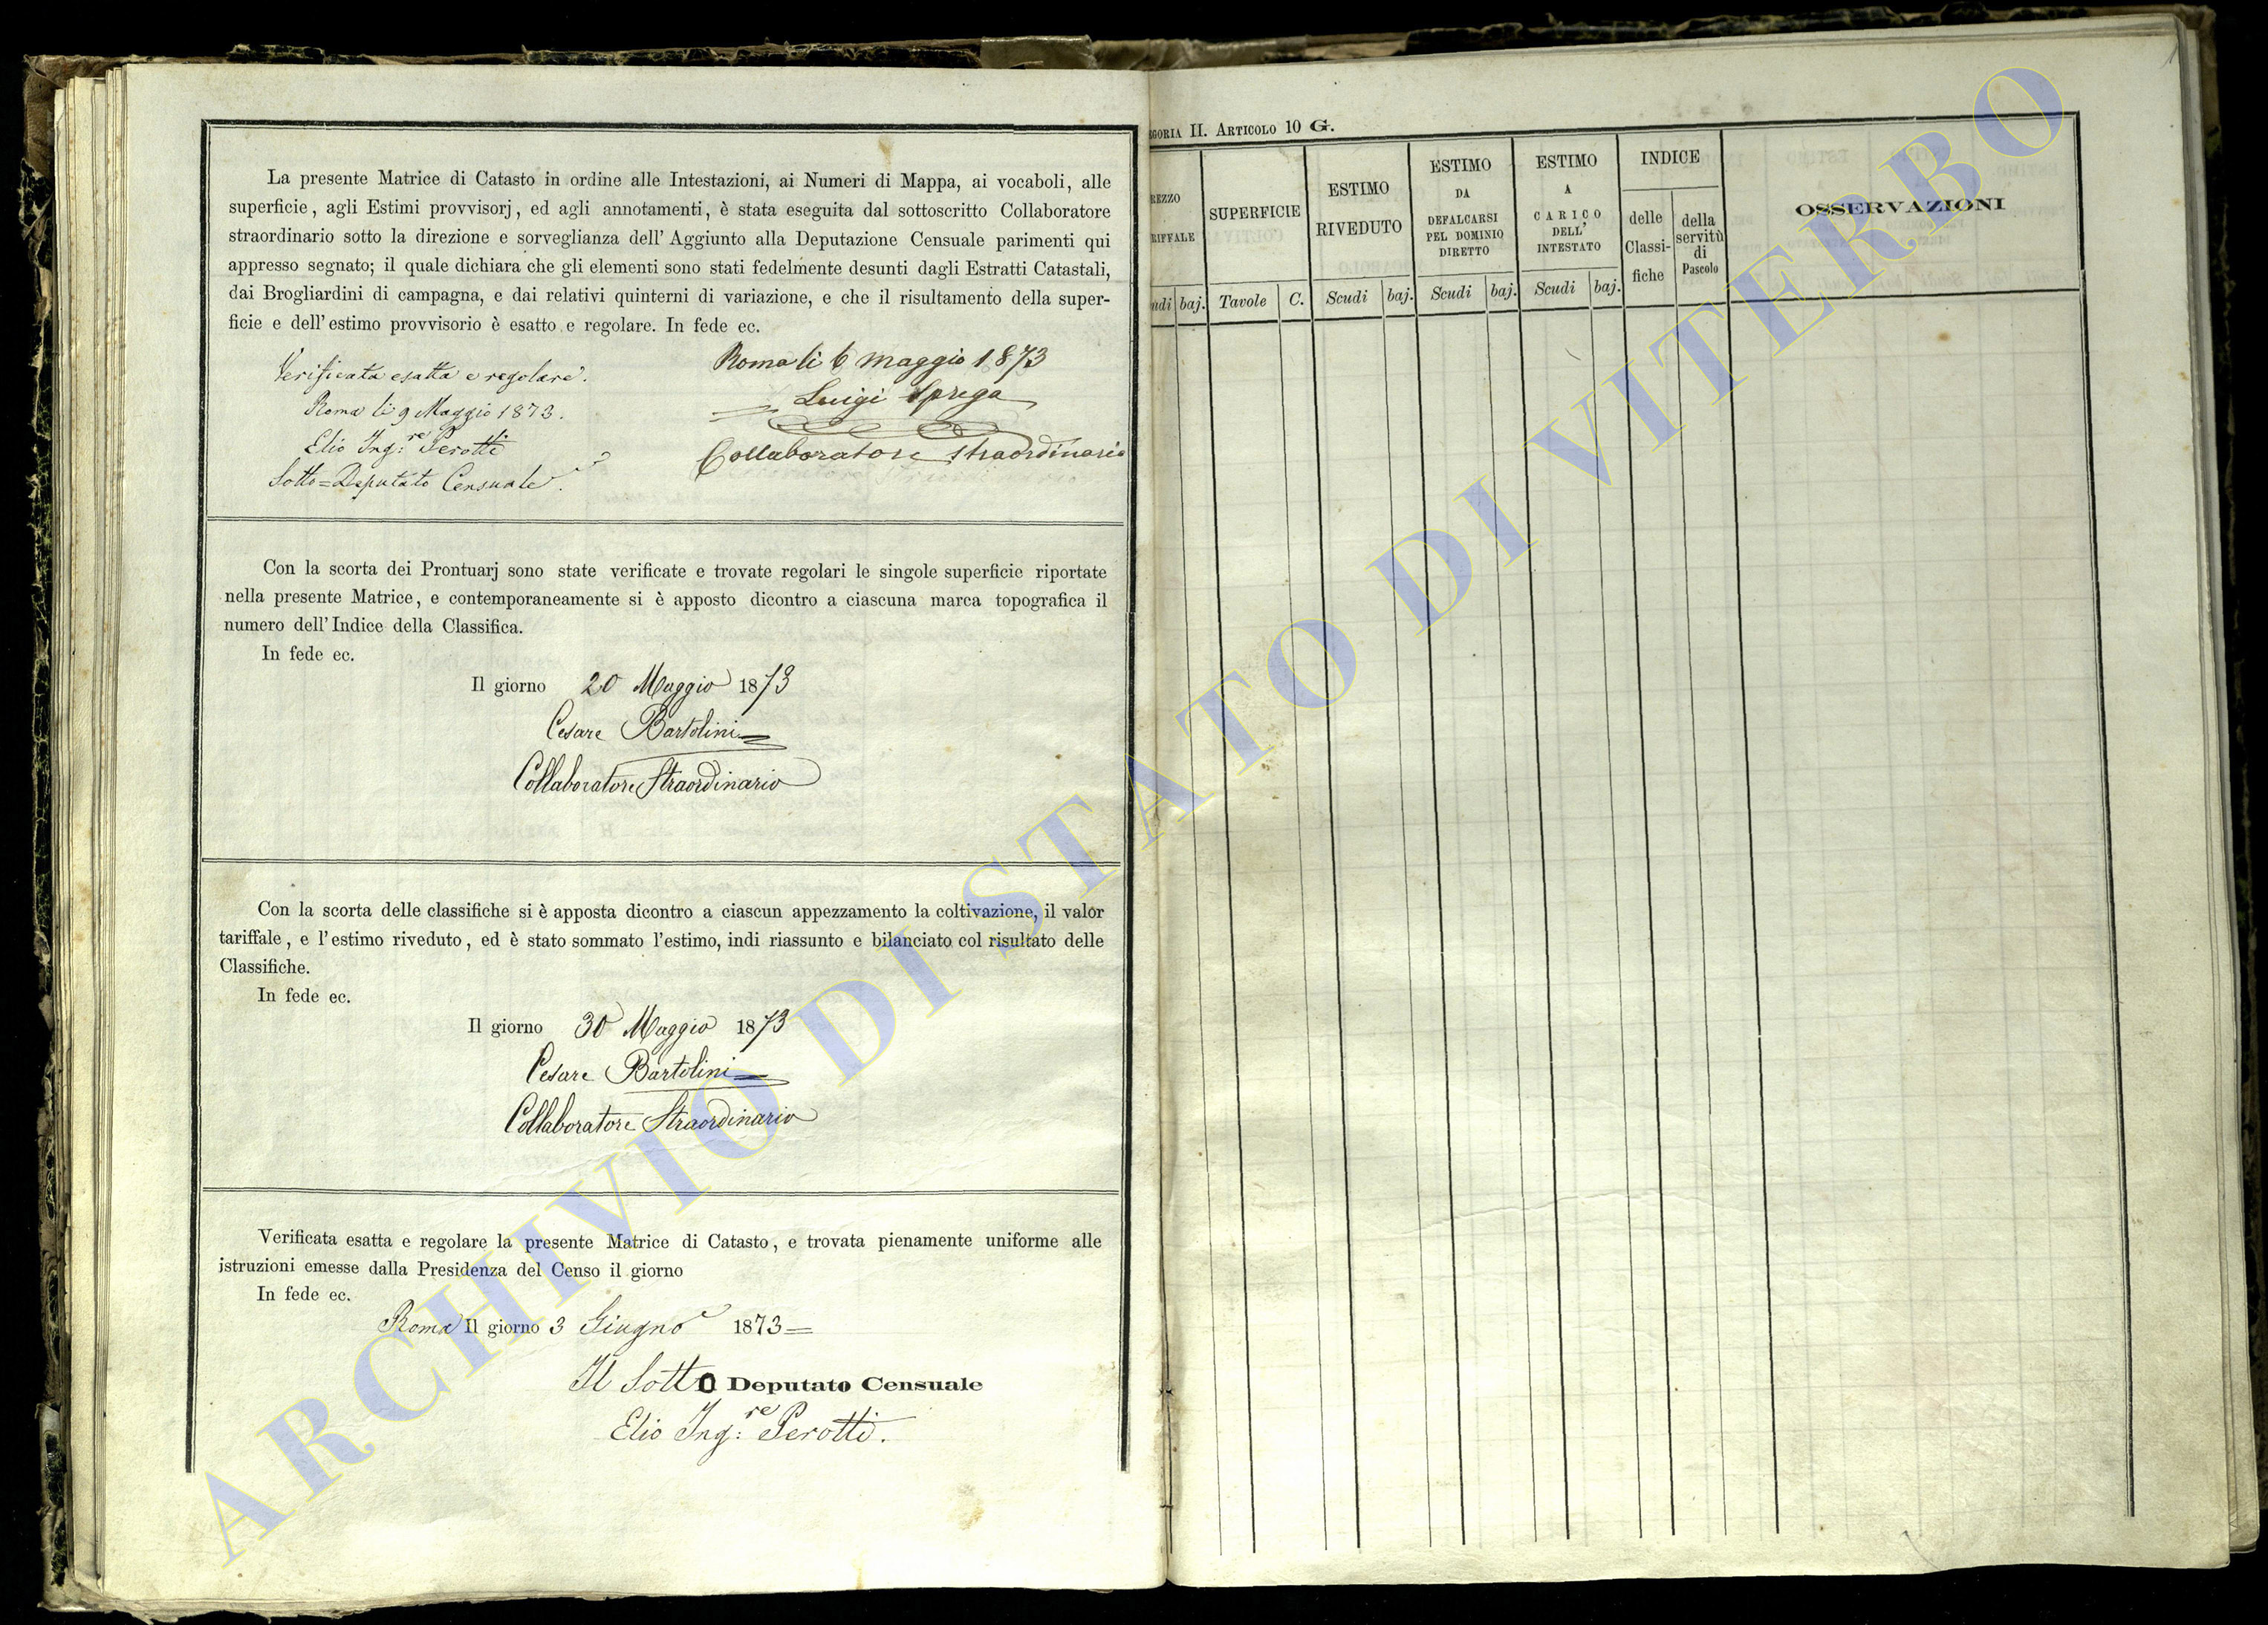 La presente Matrice di Catasto in ordine alle Intestazioni, ai Numeri di Mappa, ai vocaboli, alle
superficie, agli Estimi provvisorj, ed agli annotamenti, è stata eseguita dal sottoscritto Collaboratore
straordinario sotto la direzione e sorveglianza dell'Aggiunto alla Deputazione Censuale parimenti qui
appresso segnato; il quale dichiara che gli elementi sono stati fedelmente desunti dagli Estratti Catastali,
dai Brogliardini di campagna, e dai relativi quinterni di variazione, e che il risultamento della super-
ficie e dell'estimo provvisorio è esatto e regolare. In fede ec.
Verificata esatta e regolare.
Roma li 9 Maggio 1873.
Elio Ing:re Perotti
Sotto=Deputato Censuale.
Roma li 6 maggio 1873
Luigi Sprega
Collaboratore straordinario
Con la scorta dei Prontuarj sono state verificate e trovate regolari le singole superficie riportate
nella presente Matrice, e contemporaneamente si è apposto dicontro a ciascuna marca topografica il
numero dell'Indice della Classifica.
In fede ec.
Il giorno 20 Maggio 1873
Cesare Bartolini
Collaboratore Straordinario
Con la scorta delle classifiche si è apposta dicontro a ciascun appezzamento la coltivazione, il valor
tariffale, e l'estimo riveduto, ed è stato sommato l'estimo, indi riassunto e bilanciato col risultato delle
Classifiche.
In fede ec.
Il giorno 30 Maggio 1873
Cesare Bartolini
Collaboratore Straordinario
Verificata esatta e regolare la presente Matrice di Catasto, e trovata pienamente uniforme alle
istruzioni emesse dalla Presidenza del Censo il giorno
In fede ec.
Roma Il giorno 3 Giugno 1873=
Il Sotto Deputato Censuale
Elio Ing:re Perotti.
GORIA II. ARTICOLO 10 G.
REZZO
RIFFALE
udi baj.
SUPERFICIE
Tavole C.
ESTIMO
RIVEDUTO
Scudi baj.
ESTIMO
DA
DEFALCARSI
PEL DOMINIO
DIRETTO
Scudi baj.
ESTIMO
A
CARICO
DELL'
INTESTATO
Scudi baj.
INDICE
delle
Classi-
fiche
della
servitù
di
Pascolo
OSSERVAZIONI
ARCHIVIO DI STATO DI VITERBO